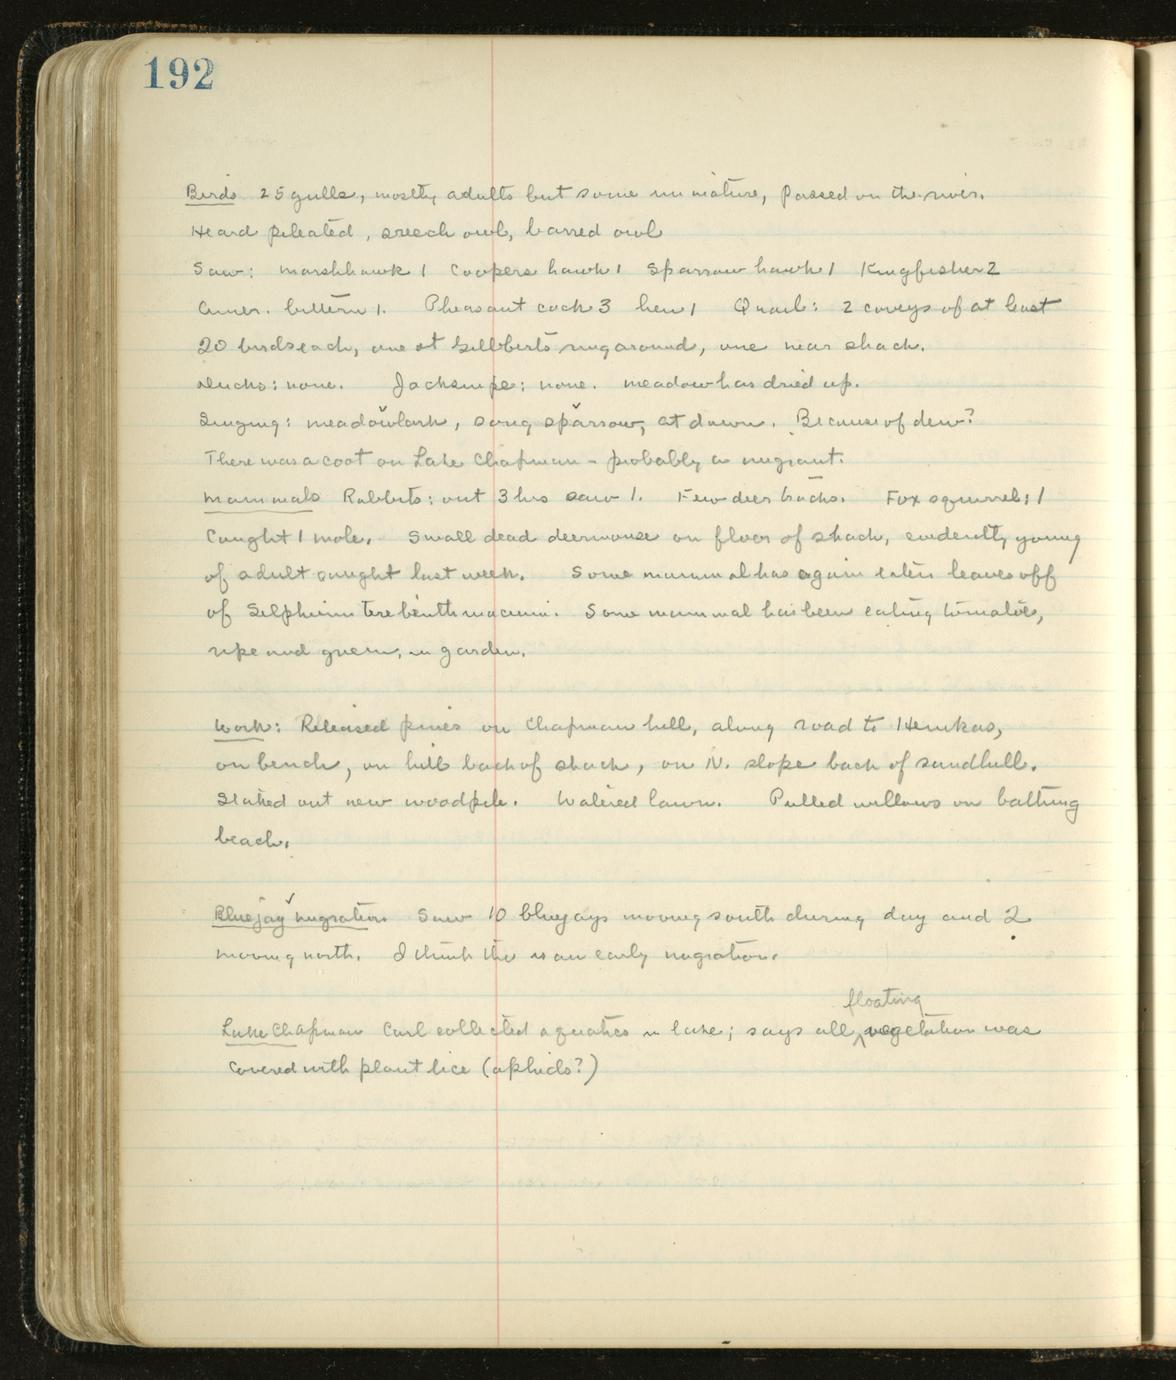 192
Birds 25 gulls, mostly adults but some immature, passed on the river.
Heard pileated, sreech owl, barred owl
Saw: Marshhawk 1 Coopers hawk 1 Sparrow hawk 1 Kingfisher 2
Amer. bittern 1. Pheasant cock 3 hen 1 Quail: 2 coveys of at least
20 birds each, one at Gilberts ringaround, one near shack.
Ducks: none. Jacksnipe: none. Meadow has dried up.
Singing: meadowlark, song sparrow, at dawn. Because of dew?
There was a coot on Lake Chapman - probably a migrant.
Mammals Rabbits: out 3 hrs saw 1. Few deer tracks. Fox squirrel: 1
Caught 1 mole. Small dead deermouse on floor of shack, evidently young
of adult caught last week. Some mammal has again eaten leaves off
of Silphium terebinthinaceum. Some mammal has been eating tomatoes,
ripe and green, in garden.
Work: Released pines on Chapman hill, along road to Hemkas,
on bench, on hill back of shack, on N. slope back of sandhill.
Staked out new woodpile. Watered lawn. Pulled willows on bathing
beach.
Bluejay migration Saw 10 bluejays moving south during day and 2
moving north. I think this is an early migration.
Lake Chapman Carl collected aquatics in lake; says all floating vegetation was
covered with plant lice (aphids?)